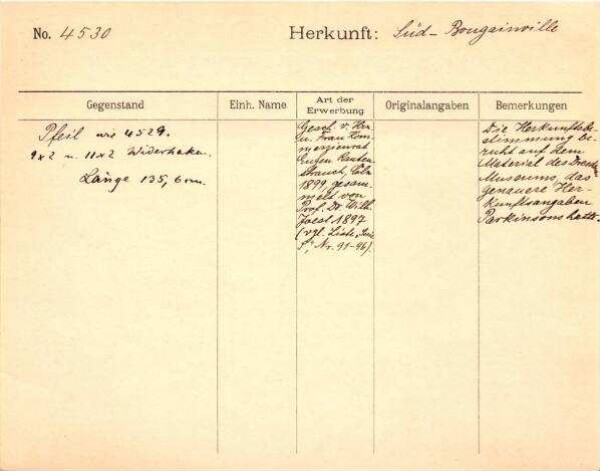 No. 4530
Herkunft: Süd-Bougainville
Gegenstand
Einh. Name
Art der Erwerbung
Originalangaben
Bemerkungen
Pfeil wie 4529.
9x2 u. 11x2 Widerhaken.
Länge 135,6 cm.
Gesch. v. Hrn.
u. Frau Kom-
merzienrat
Eugen Rauten-
strauch, Cöln
1899, gesam-
melt von
Prof. Dr. Wilh.
Joest 1897
(vgl. Liste, Serie
Nr. 91-96).
Die Herkunftsbe-
stimmung be-
ruht auf dem
Material des Dresd.
Museums, das
genauere Her-
kunftsangaben
Parkinsons hatte.